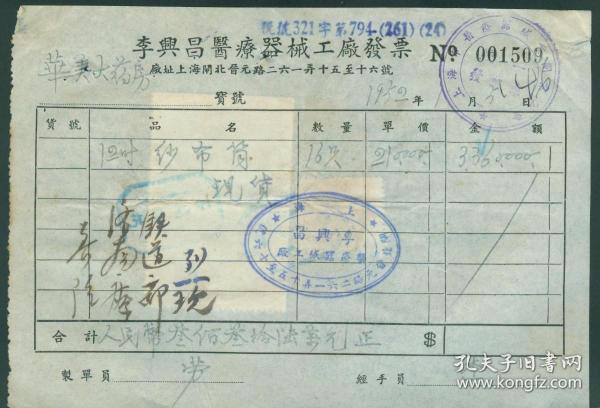 税號321字第794-(261)(24)
李興昌醫療器械工廠發票 № 001509
廠址上海閘北晉元路二六一弄十五至十六號
華美大药房 寶號
1952年 月 日
貨號 品名 數量 單價 金額
12吋 紗布筒 16只 210,000 3,360,000
現貨
上海
李興昌
醫療器械工廠
濟南鐵
道
合計 人民幣叁佰叁拾陸萬元正 $
製單員 經手員
孔夫子旧书网
www.kongfz.com